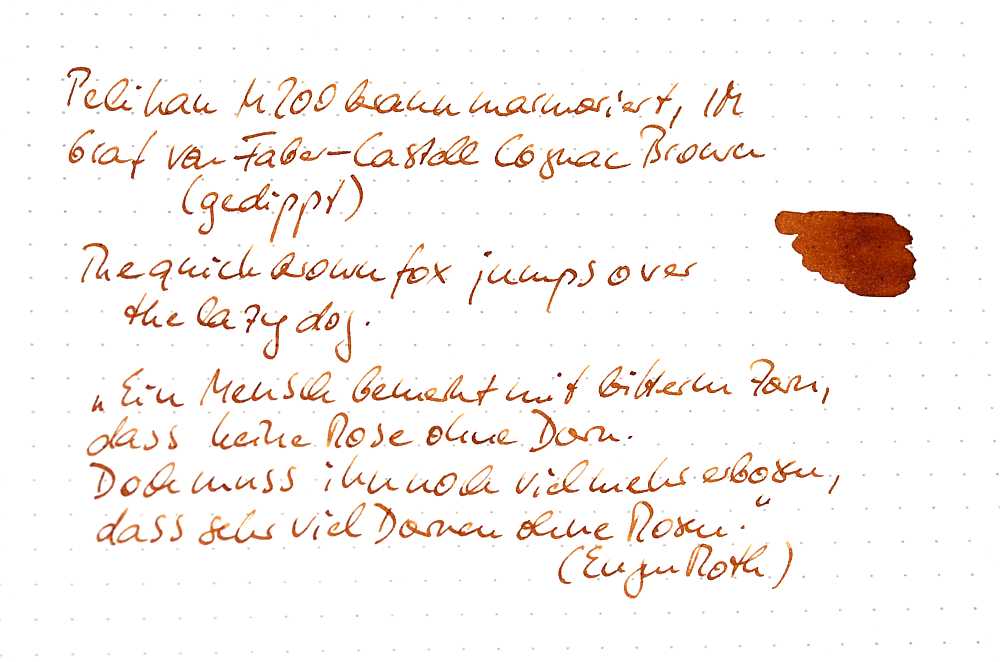 Pelikan M200 braun marmoriert, IM
Graf von Faber-Castell Cognac Brown
(gedippt)
The quick brown fox jumps over
the lazy dog.
„Ein Mensch bemerkt mit bitterm Zorn,
dass keine Rose ohne Dorn.
Doch muss ihn noch viel mehr erbosen,
dass sehr viel Dornen ohne Rosen."
(Eugen Roth)